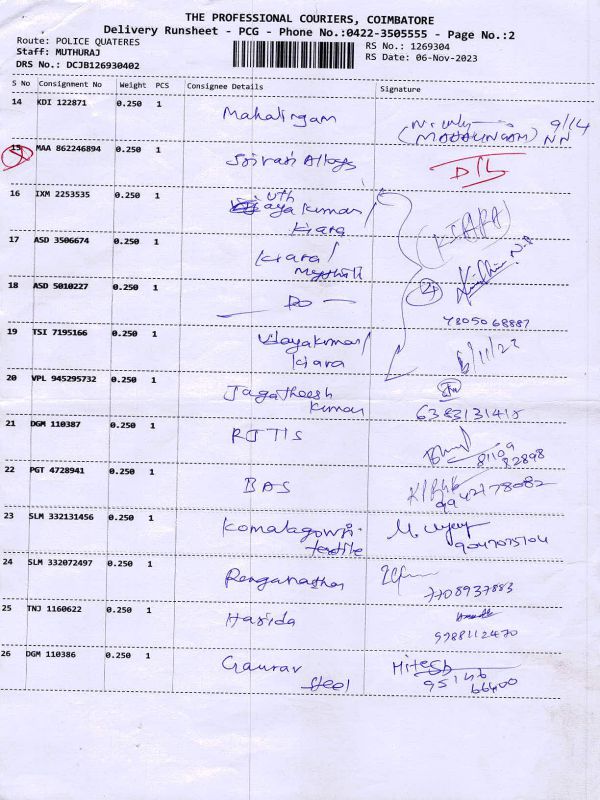 THE PROFESSIONAL COURIERS, COIMBATORE
Delivery Runsheet - PCG - Phone No.:0422-3505555 - Page No.:2
Route: POLICE QUATERES
Staff: MUTHURAJ
DRS No.: DCJB126930402
RS No.: 1269304
RS Date: 06-Nov-2023
S No Consignment No Weight PCS Consignee Details Signature
14 KDI 122871 0.250 1 Mahalingam 9/14
(MAHALINGAM) NN
15 MAA 862246894 0.250 1 Sriram Alloys D/L
16 IXM 2253535 0.250 1 uth
ayakumar/
Kiara
KIARA
17 ASD 3506674 0.250 1 Kiara/
18 ASD 5010227 0.250 1 — Do — 4
7805068887
19 TSI 7195166 0.250 1 Udayakumar/
Kiara
6/11/23
20 VPL 945295732 0.250 1 Jagatheesh
Kumar
638313141
21 DGM 110387 0.250 1 RJTIS
81109
82898
22 PGT 4728941 0.250 1 BAS
9942178082
23 SLM 332131456 0.250 1 Komalagowri
textile
M.
24 SLM 332072497 0.250 1 Renganathan
7708937883
25 TNJ 1160622 0.250 1 Harida
9988112470
26 DGM 110386 0.250 1 Gaurav
Steel
Hitesh
95146
66400